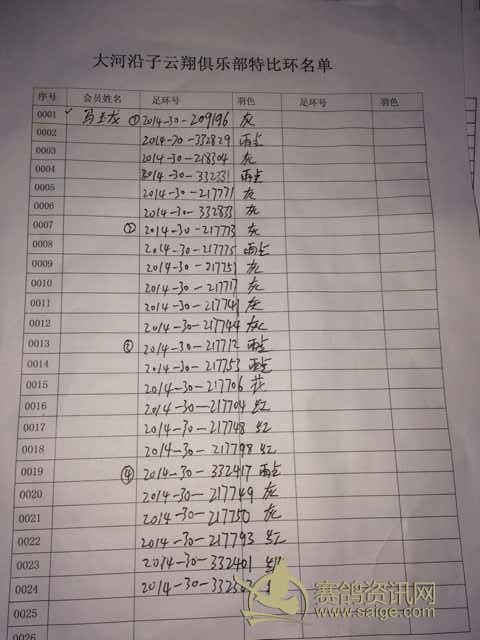 大河沿子云翔俱乐部特比环名单
序号 会员姓名 足环号 羽色 足环号 羽色
0001 ① 2014-30-209196 灰
0002 2014-30-332829 雨点
0003 2014-30-218304 灰
0004 2014-30-332331 雨点
0005 2014-30-217771 灰
0006 2014-30-332833 灰
0007 ② 2014-30-217773 灰
0008 2014-30-217775 雨点
0009 2014-30-217751 灰
0010 2014-30-217717 灰
0011 2014-30-217741 灰
0012 2014-30-217744 灰
0013 ③ 2014-30-217712 雨点
0014 2014-30-217753 雨点
0015 2014-30-217706 花
0016 2014-30-217704 红
0017 2014-30-217748 红
0018 2014-30-217798 红
0019 ④ 2014-30-332417 雨点
0020 2014-30-217749 灰
0021 2014-30-217750 灰
0022 2014-30-217793 红
0023 2014-30-332401
0024 2014-30-
0025
0026
赛鸽资讯网
www.saige.com